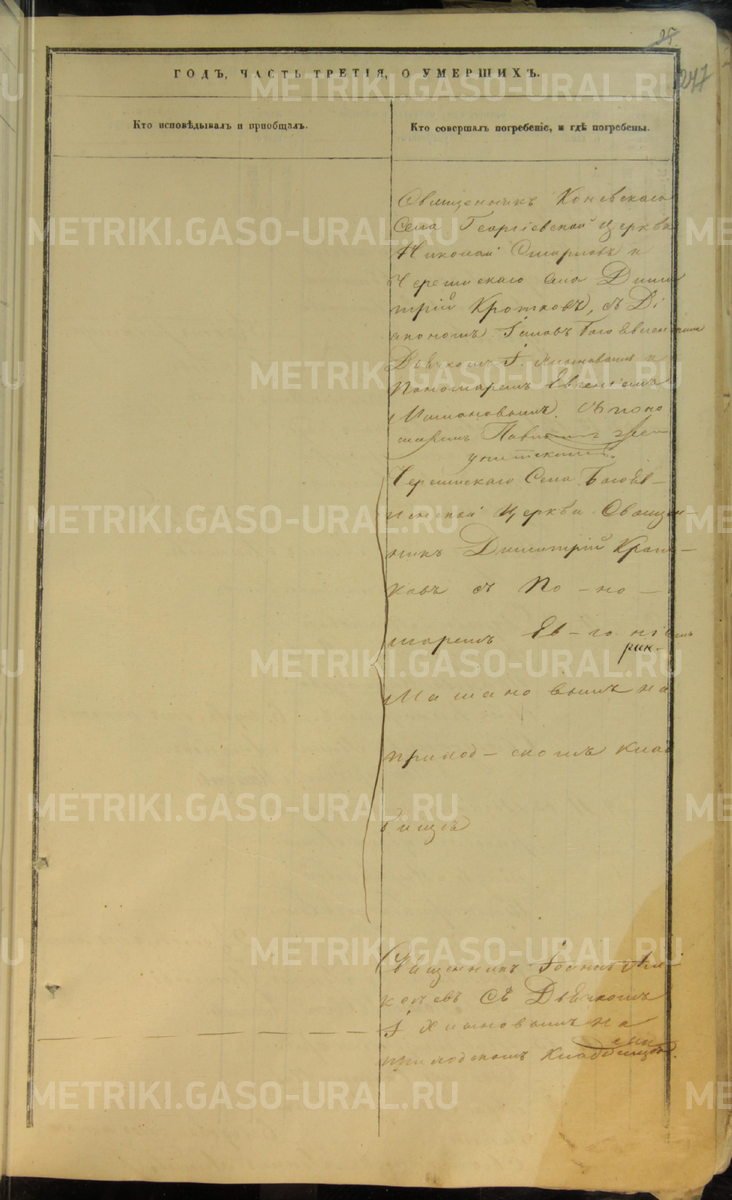 28
247
ГОДЪ, ЧАСТЬ ТРЕТІЯ, О УМЕРШИХЪ.
Кто исповѣдывалъ и пріобщалъ.
Кто совершалъ погребеніе, и гдѣ погребены.
Священникъ Коневскаго
Села Георгіевской Церкви
Николай Смирновъ и
Черемискаго села Дими
трій Кротковъ, съ Ді
акономъ
Дьячкомъ І. и
Пономаремъ Евгеніемъ
Машановымъ. Съ поно
маремъ
Черемискаго Села Богояв-
ленской Церкви Священ-
никъ Димитрій Крот-
ковъ съ По-но-
маремъ Ев-геніемъ
Машановымъ на
приход-скомъ клад
бищѣ
Священникъ Іоаннъ
съ Дьячкомъ
І на
приходскомъ кладбищѣ.
METRIKI.GASO-URAL.RU